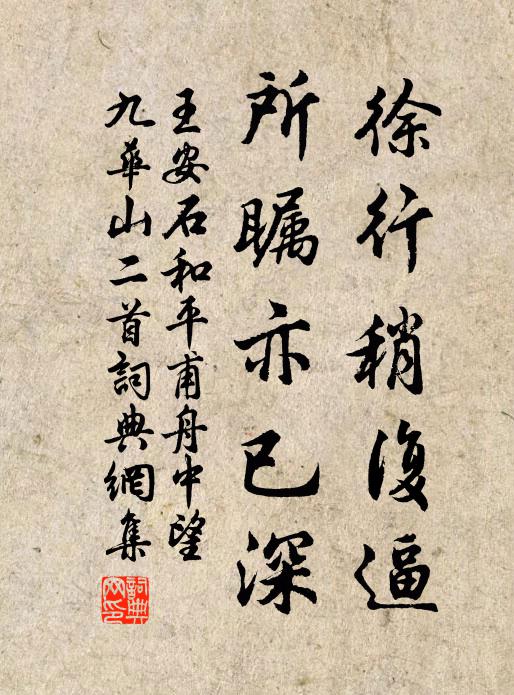 徐行稍復逼
所瞩亦已深
王安石和平甫舟中望
九華山二首詞典網集
詞典
网印